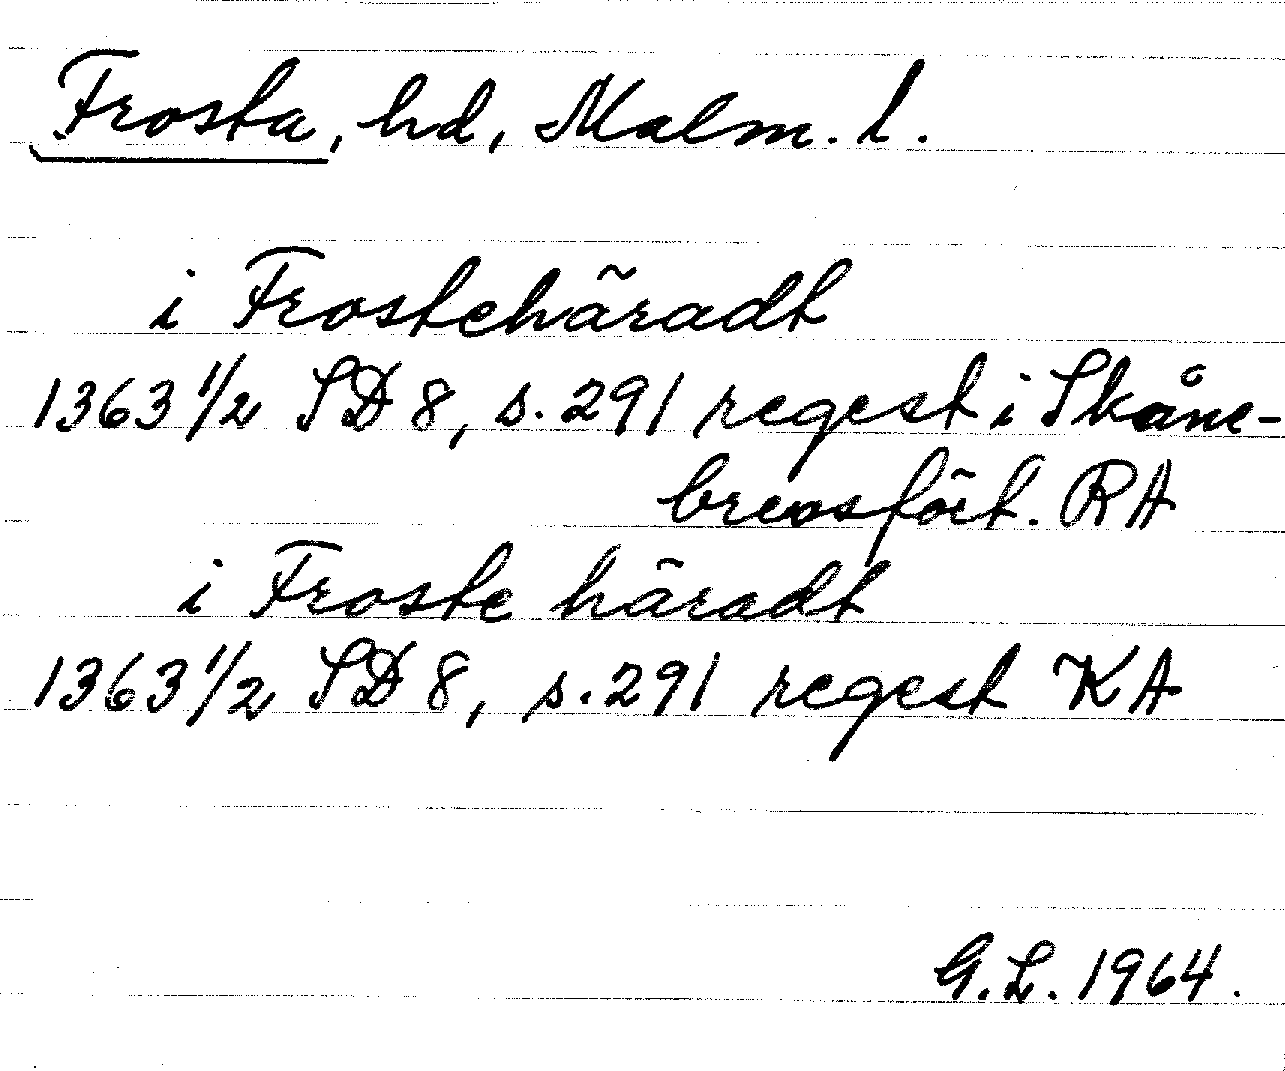 Frosta, hd, Malm. l.
i Frostehäradt
1363 1/2 SD 8, s. 291 regest i Skåne-
brevsfört. RA
i Froste häradt
1363 1/2 SD 8, s. 291 regest KA
G.L. 1964.